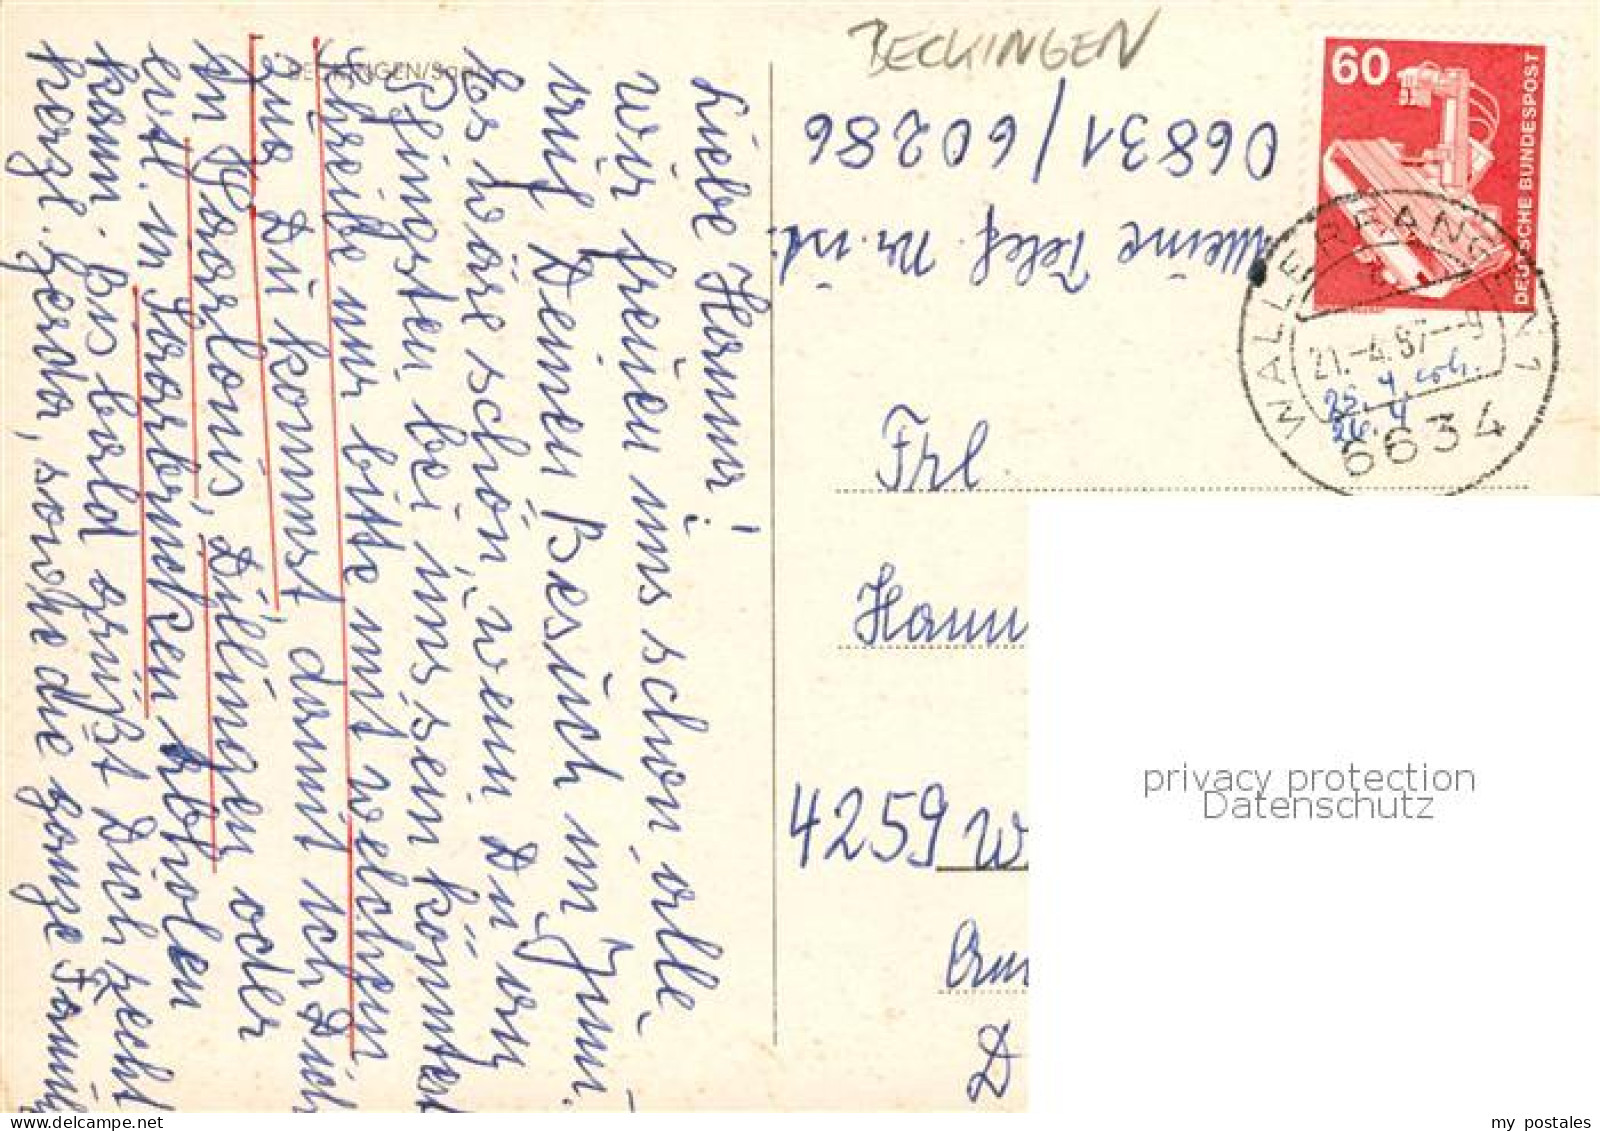 BECKINGEN
BECKINGEN/Saar
Liebe Hanna!
Wir freuen uns schon alle
auf Deinen Besuch im Juni.
Es wäre schön, wenn Du an
Pfingsten bei uns sein könntest
Schreibe nur bitte mit welchem
Zug Du kommst, damit ich Dich
in Saarlouis, Dillingen oder
evtl. in Saarbrücken abholen
kann. Bis bald grüßt Dich recht
herzl. Gerda, sowie die ganze Famil
06831/60286
Meine Telef. Nr. ist:
60
DEUTSCHE BUNDESPOST
WALLERFANGEN 1
21.-4.87--9
25. 4
26. 4
6634
Frl.
Hann
4259 W
Am
D
privacy protection
Datenschutz
my postales